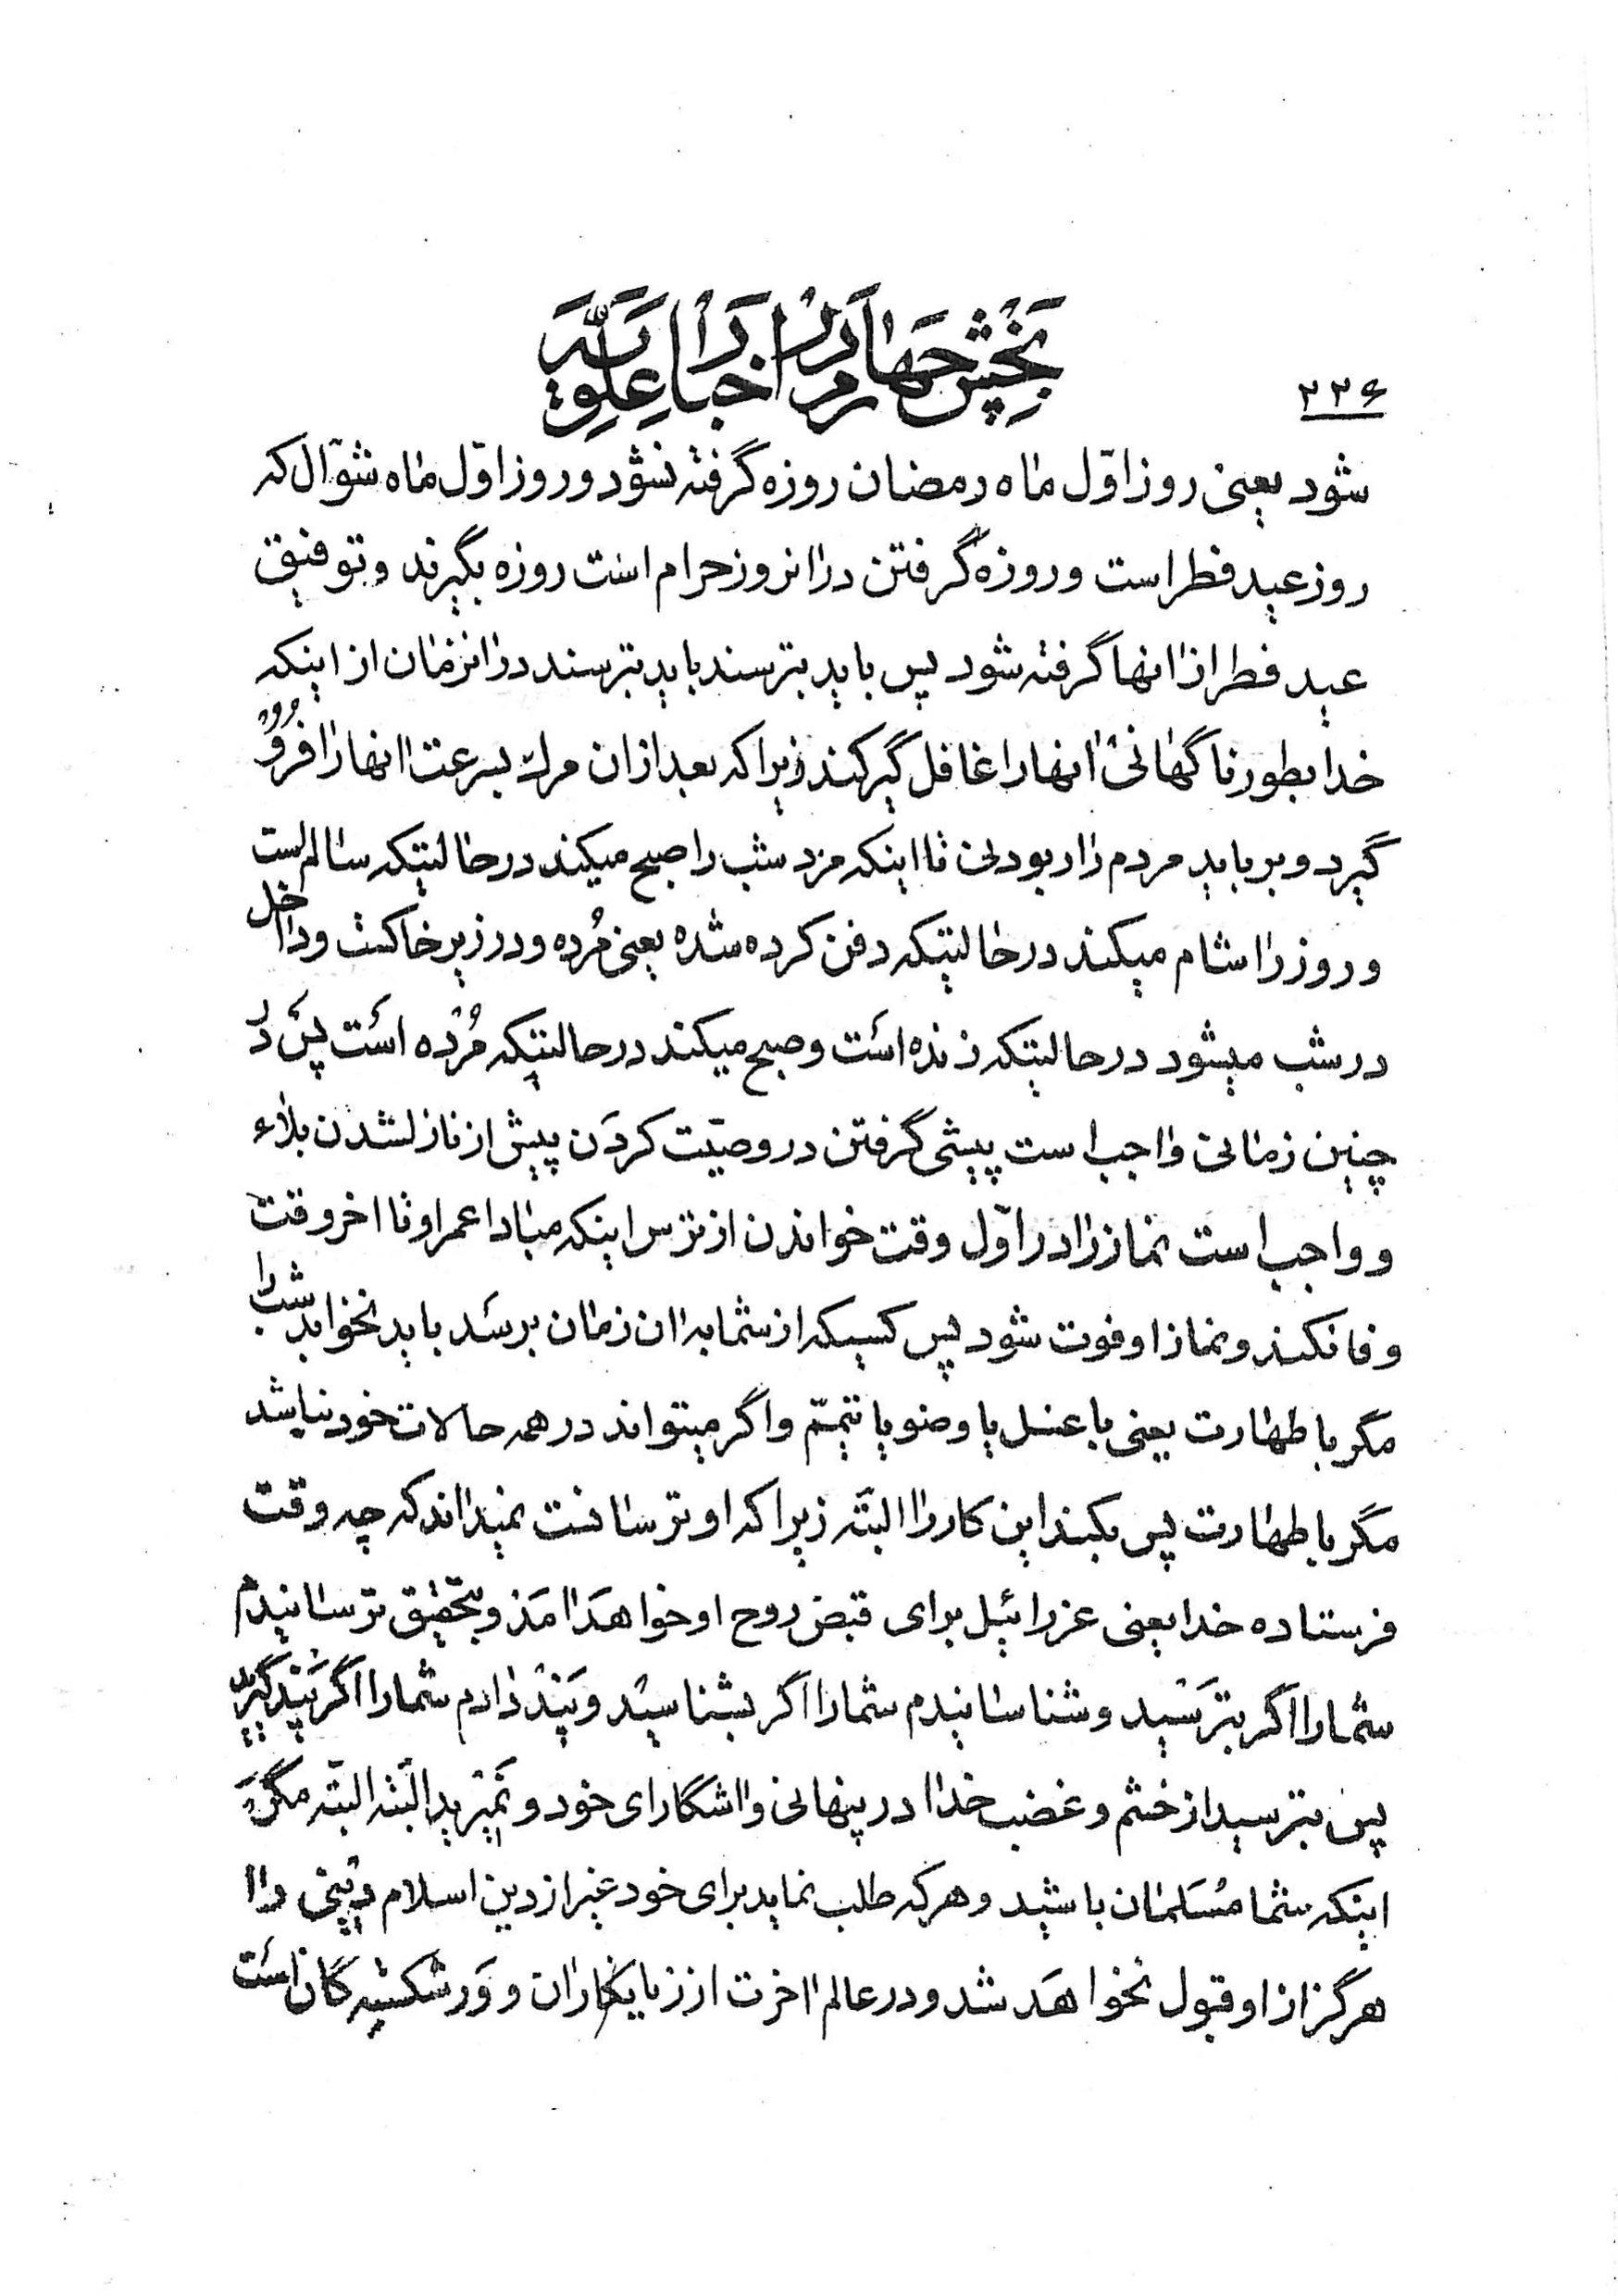 بخش چهارم در اخبار علویه
۲۲۶
شود یعنی روز اوّل ماه رمضان روزه گرفته نشود و روز اوّل ماه شوّال که
روز عید فطر است و روزه گرفتن در انروز حرام است روزه بگیرند و توفیق
عید فطر از انها گرفته شود پس باید بترسند باید بترسند در انزمان از اینکه
خدا بطور ناگهانی انها را غافل گیر کند زیرا که بعد از ان مرگ بسرعت انها را فرو
گیرد و برباید مردم را ربودنی تا اینکه مرد شب را صبح میکند در حالتیکه سالم است
و روز را شام میکند در حالتیکه دفن کرده شده یعنی مُرده و در زیر خاکست و داخل
در شب میشود در حالتیکه زنده است و صبح میکند در حالتیکه مُرده است پس در
چنین زمانی واجب است پیشی گرفتن در وصیّت کردن پیش از نازلشدن بلاء
و واجب است نماز را در اوّل وقت خواندن از ترس اینکه مبادا عمر او تا اخر وقت
وفا نکند و نماز او فوت شود پس کسیکه از شما به ان زمان برسد باید نخوابد شب را
مگر با طهارت یعنی با غسل یا وضو یا تیمّم و اگر میتواند در همه حالات خود نباشد
مگر با طهارت پس بکند این کار را البتّه زیرا که او ترسانست نمیداند که چه وقت
فرستاده خدا یعنی عزرائیل برای قبض روح او خواهد امد و بتحقیق ترسانیدم
شما را اگر بترسید و شناسانیدم شما را اگر بشناسید و پند دادم شما را اگر پند گیرید
پس بترسید از خشم و غضب خدا در پنهانی و اشکارای خود و نمیرید البتّه البتّه مگر
اینکه شما مُسَلمان باشید و هر که طلب نماید برای خود غیر از دین اسلام دینی را
هرگز از او قبول نخواهد شد و در عالم اخرت از زیانکاران و ورشکستگان است